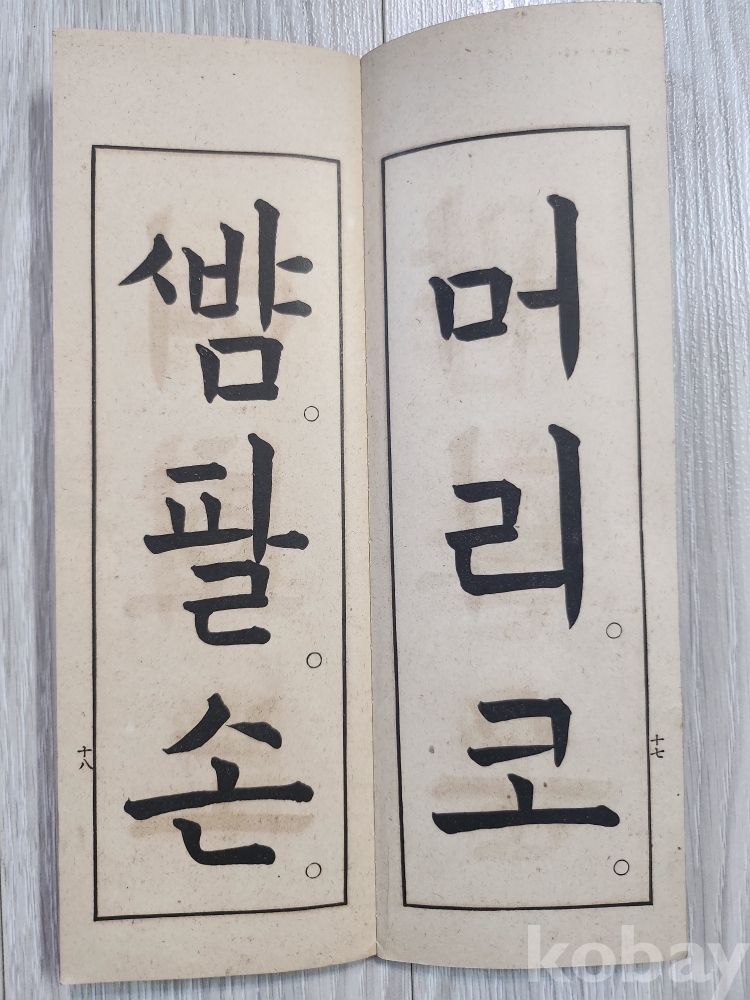 머리○코○
十七
ᄲᅣᆷ○팔○손○
十八
kobay